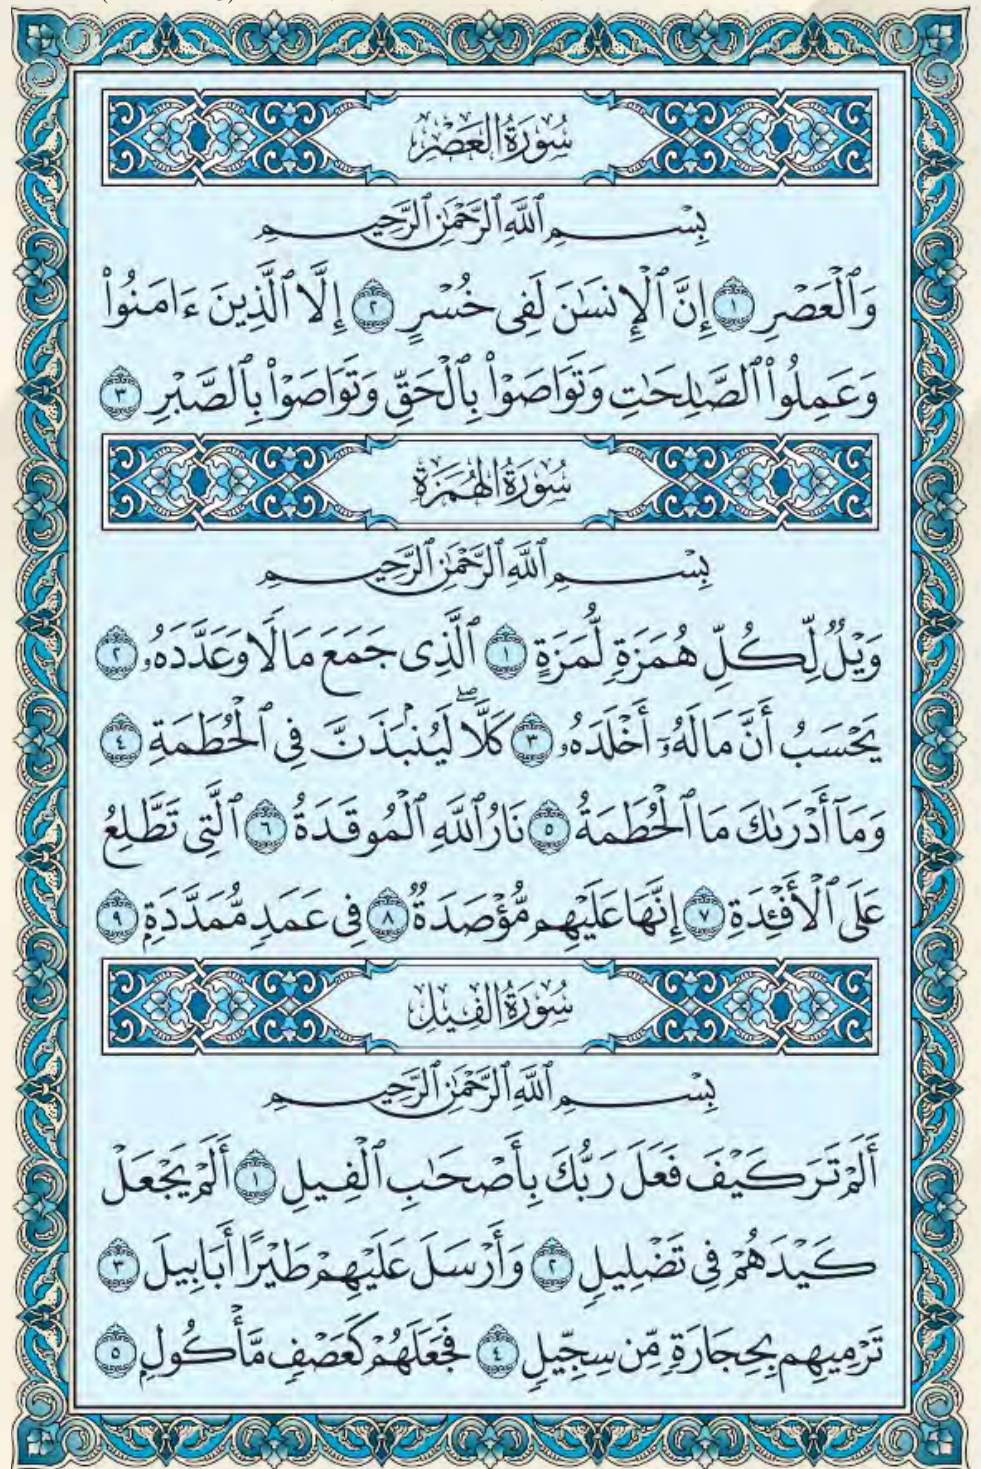 سُورَةُ العَصْرِ
بِسْمِ ٱللَّهِ ٱلرَّحْمَٰنِ ٱلرَّحِيمِ
وَٱلْعَصْرِ ١ إِنَّ ٱلْإِنسَٰنَ لَفِى خُسْرٍ ٢ إِلَّا ٱلَّذِينَ ءَامَنُوا۟
وَعَمِلُوا۟ ٱلصَّٰلِحَٰتِ وَتَوَاصَوْا۟ بِٱلْحَقِّ وَتَوَاصَوْا۟ بِٱلصَّبْرِ ٣
سُورَةُ الهُمَزَةِ
بِسْمِ ٱللَّهِ ٱلرَّحْمَٰنِ ٱلرَّحِيمِ
وَيْلٌ لِّكُلِّ هُمَزَةٍ لُّمَزَةٍ ١ ٱلَّذِى جَمَعَ مَالًا وَعَدَّدَهُۥ ٢
يَحْسَبُ أَنَّ مَالَهُۥٓ أَخْلَدَهُۥ ٣ كَلَّا ۖ لَيُنۢبَذَنَّ فِى ٱلْحُطَمَةِ ٤
وَمَآ أَدْرَىٰكَ مَا ٱلْحُطَمَةُ ٥ نَارُ ٱللَّهِ ٱلْمُوقَدَةُ ٦ ٱلَّتِى تَطَّلِعُ
عَلَى ٱلْأَفْـِٔدَةِ ٧ إِنَّهَا عَلَيْهِم مُّؤْصَدَةٌ ٨ فِى عَمَدٍ مُّمَدَّدَةٍۭ ٩
سُورَةُ الفِيلِ
بِسْمِ ٱللَّهِ ٱلرَّحْمَٰنِ ٱلرَّحِيمِ
أَلَمْ تَرَ كَيْفَ فَعَلَ رَبُّكَ بِأَصْحَٰبِ ٱلْفِيلِ ١ أَلَمْ يَجْعَلْ
كَيْدَهُمْ فِى تَضْلِيلٍ ٢ وَأَرْسَلَ عَلَيْهِمْ طَيْرًا أَبَابِيلَ ٣
تَرْمِيهِم بِحِجَارَةٍ مِّن سِجِّيلٍ ٤ فَجَعَلَهُمْ كَعَصْفٍ مَّأْكُولٍۭ ٥